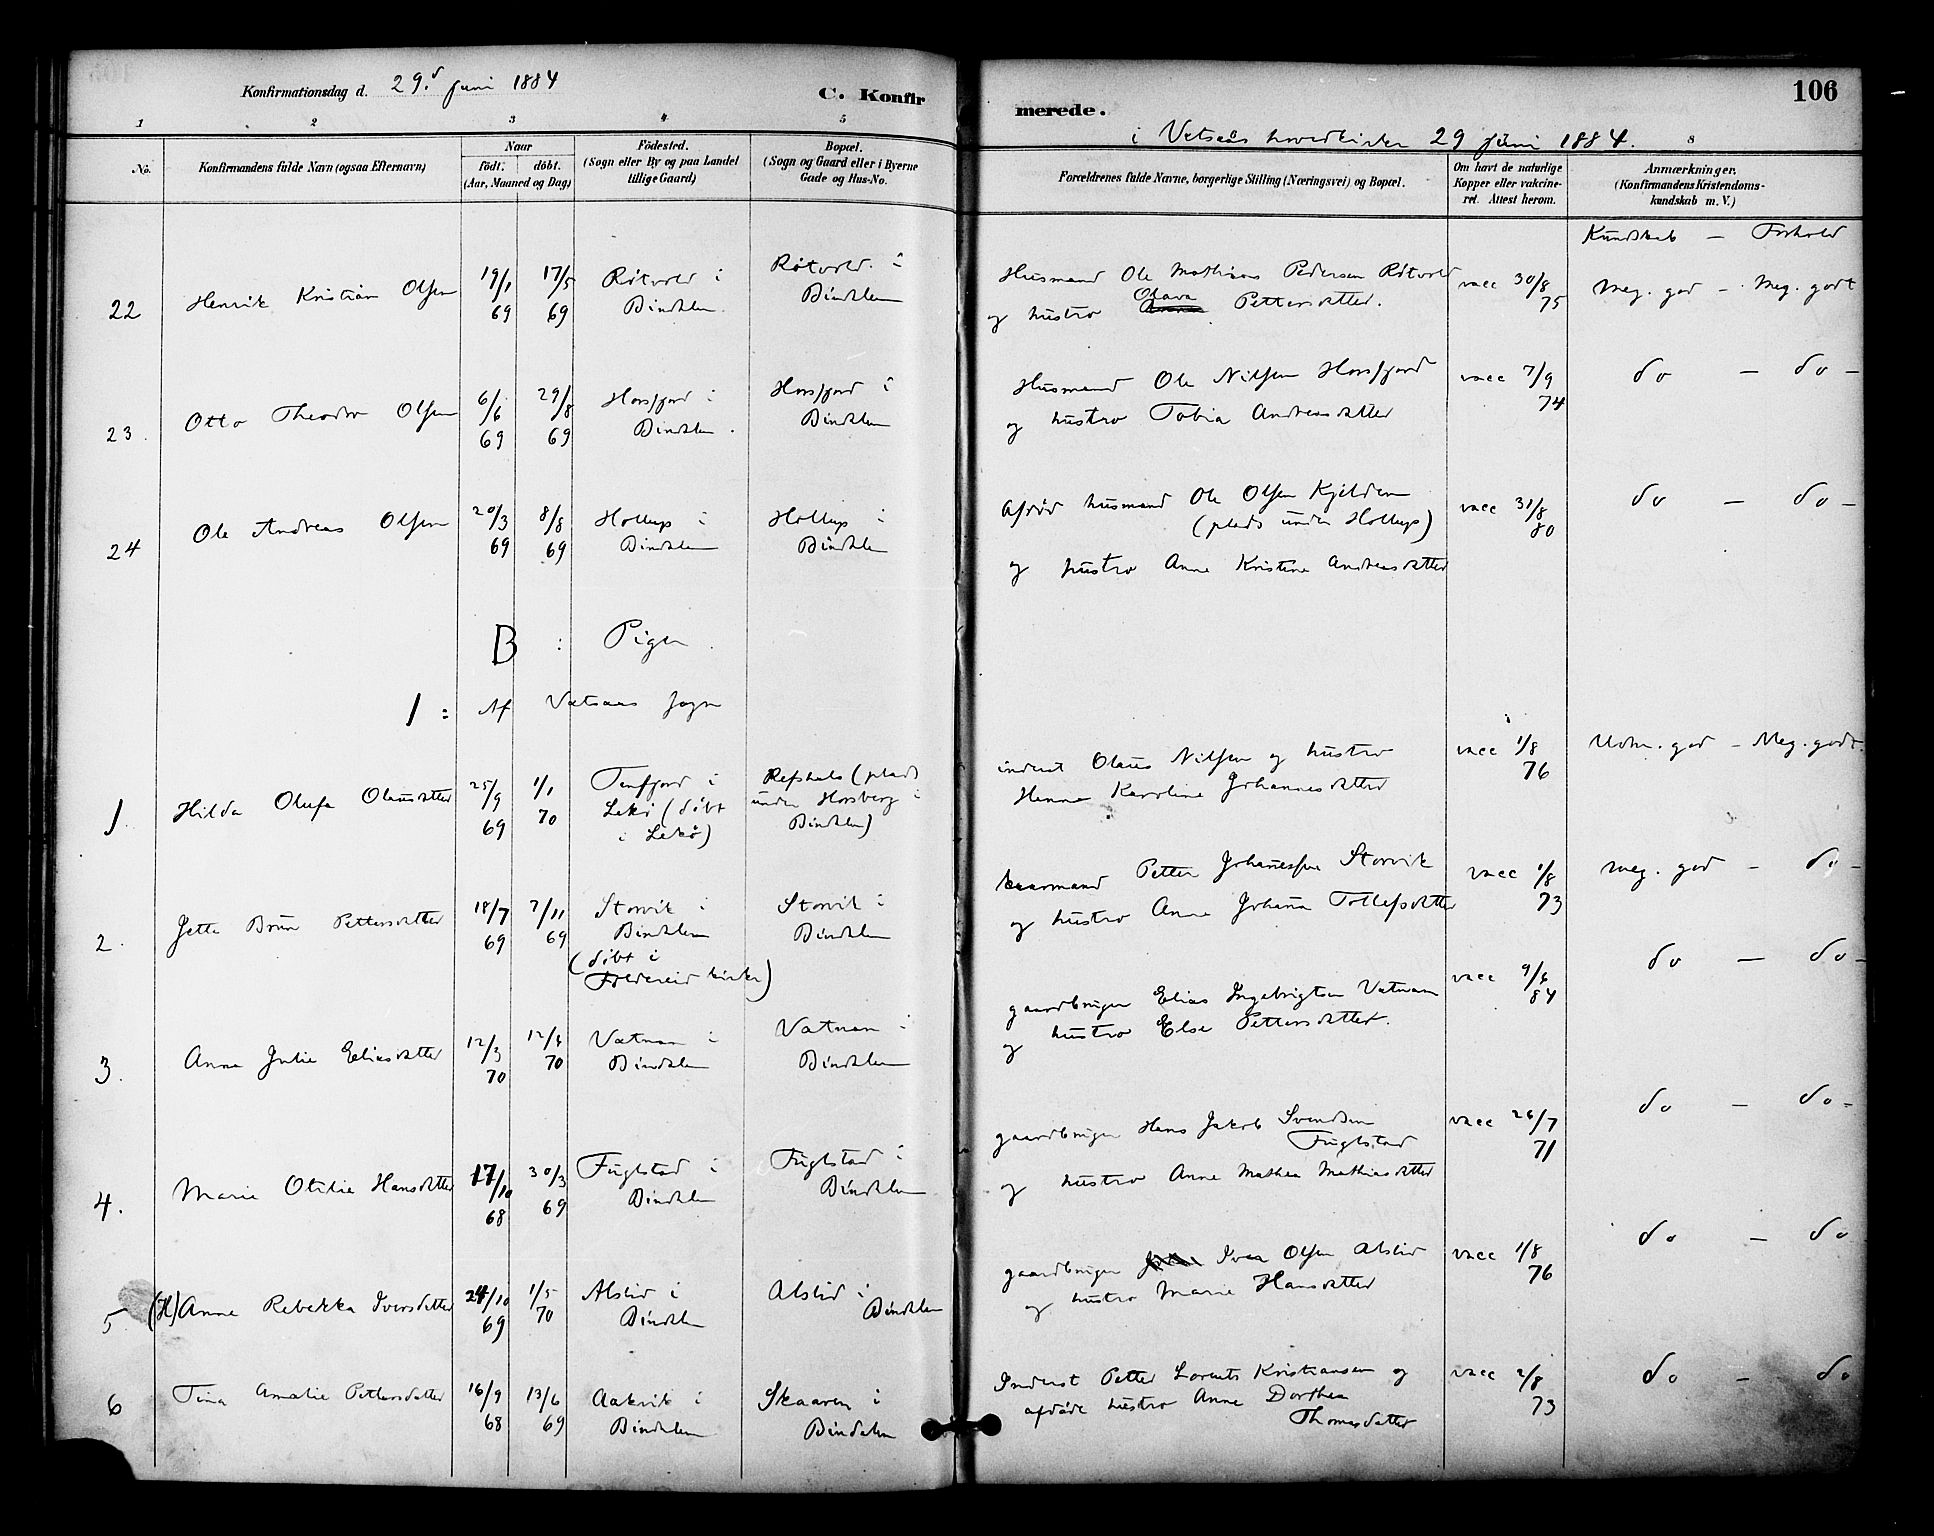 Konfirmationsdag d. 29. Juni 1884
C. Konfir
merede.
106
i Vatsaas hovedkirke 29 Juni 1884.
1 2 3 4 5 8
No.
Konfirmandens fulde Navn (ogsaa Efternavn)
Naar
födt. döbt.
(Aar, Maaned og Dag)
Födested.
(Sogn eller By og paa Landet
tillige Gaard)
Bopæl.
(Sogn og Gaard eller i Byerne
Gade og Hus-No.
Forældrenes fulde Navne, borgerlige Stilling (Næringsvei) og Bopæl.
Om havt de naturlige
Kopper eller vakcine-
ret. Attest herom.
Anmærkninger.
(Konfirmandens Kristendoms-
kundskab m. V.)
Kundskab — Forhold
22 Henrik Kristian Olsen
19/1 69
17/5 69
Røtvold i
Bindalen.
Røtvold i
Bindalen
Husmand Ole Mathias Pedersen Røtvold
og hustro Olava Pettersdatter.
vacc 30/8 75
Meg. god — Meg. godt
23. Otto Theodor Olsen
6/6 69
29/8 69
Horsfjord i
Bindalen.
Horsfjord i
Bindalen
Husmand Ole Nilsen Horsfjord
og hustro Tobia Andreasdatter
vacc 7/9 74
do — do —
24 Ole Andreas Olsen
20/3 69
8/8 69
Hollup i
Bindalen
Hollup i
Bindalen
Afdød husmand Ole Olsen Kjelden
(plads under Hollup)
og hustro Anne Kristine Andreasdatter
vacc 31/8 80
do — do —
B : Piger.
1 : Af Vatsaas sogn
1. Hilda Olufa Olausdatter
25/9 69
1/1 70
Terfjord i
Lekø (døbt
i Lekø)
Refshals (plads
under Horsberg i
Bindalen)
inderst Olaus Nilsen og hustro
Henna Karoline Johannesdatter
vacc 1/8 76
Udm. god — Meg. godt.
2. Jette Brun Pettersdatter
18/7 69
7/11 69
Storvik i
Bindalen
(døbt i
Foldereid kirke)
Storvik i
Bindalen
kaarmand Petter Johanessen Storvik
og hustro Anne Johana Tollefsdatter
vacc 1/8 73
meg. god — do —
3. Anna Julie Eliasdatter
12/3 70
12/6 70
Vatnan i
Bindalen
Vatnan i
Bindalen
gaardbruger Elias Ingebrigtsen Vatnan
og hustro Else Pettersdatter.
vacc 9/6 84
do — do —
4. Marie Otilie Hansdatter
17/10 68
30/3 69
Fuglstad i
Bindalen
Fuglstad i
Bindalen
gaardbruger Hans Jakob Svendsen
Fuglstad
og hustro Anne Mathea Mathiasdatter
vacc 26/7 71
do — do —
5 (H) Anne Rebekka Iversdatter
24/10 69
1/5 70
Alslid i
Bindalen
Alslid i
Bindalen
gaardbruger Iver Olsen Alslid
og hustro Marie Hansdatter
vacc 1/8 76
do — do
6 Tina Amalie Pettersdatter
16/9 68
13/6 69
Aakvik i
Bindalen
Skaaren i
Bindalen
Inderst Petter Lornts Kristiansen og
afdøde hustro Anne Dorthea
Thomasdatter
vacc 2/8 73
do — do